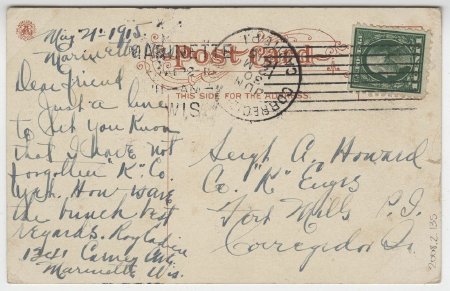 May 21st 1915.
Marinette
Dear friend
Just a line
to let you know
that I have not
forgotten "K" Co.
yet. How is
the bunch best
regards. Roy
1341 Carney Ave.
Marinette Wis.
MARINETTE
WIS.
Post Card
THIS SIDE FOR THE ADDRESS.
Sergt A. Howard
Co. "K" Engrs
Fort Mills P. I.
Corregidor Is.